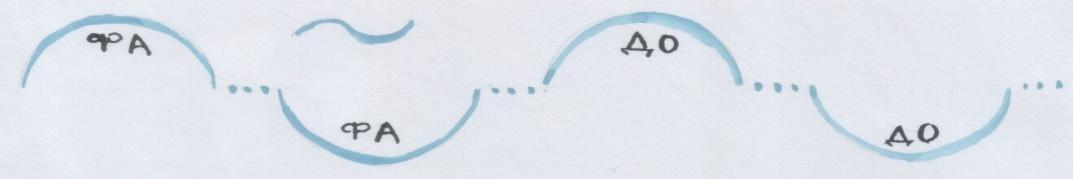 ФА ... ФА ... ДО ... ДО ...